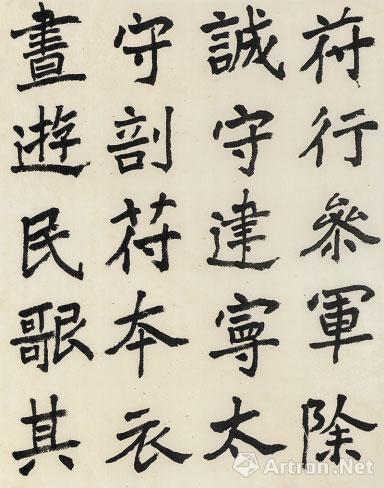 苻行參軍除
誠守建寧太
守剖符本衣
晝遊民歌其
Artron.Net